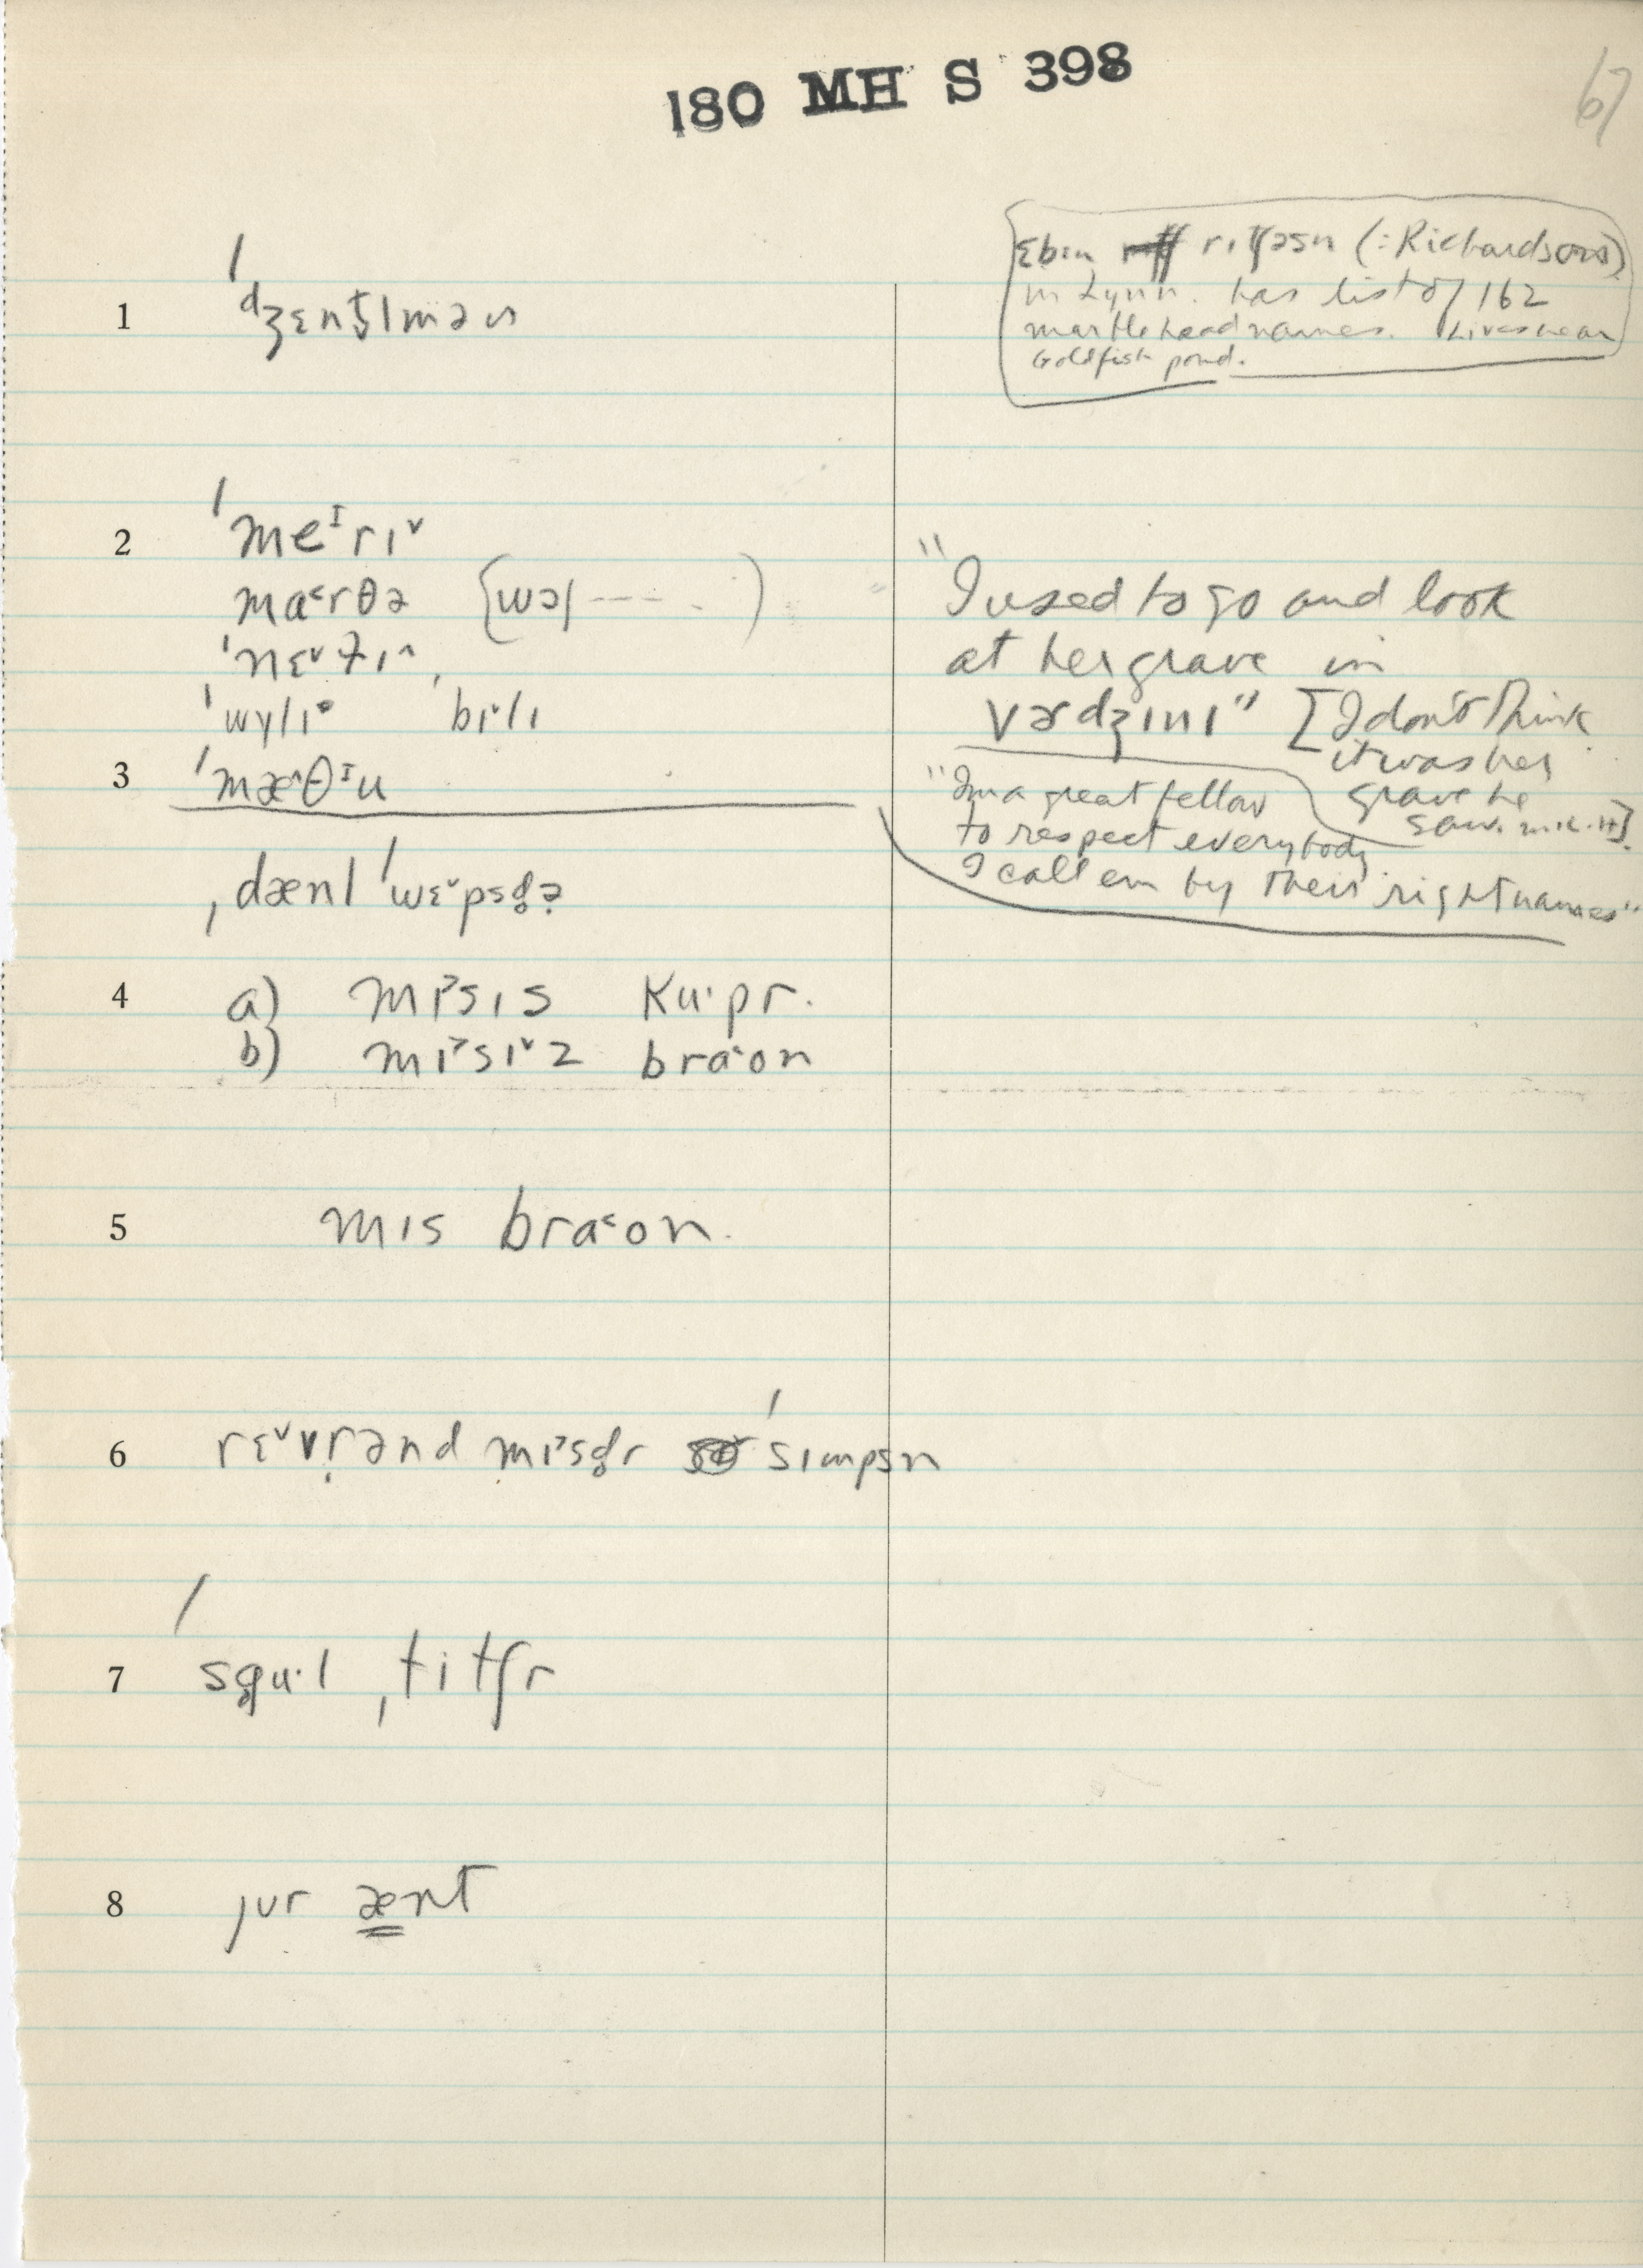 180 MH S 398
67
ɛbɪn rɪtʃəsn (:Richardson)
in Lynn. has list of 162
marblehead names. Lives near
Goldfish pond.
1 ˈdʒɛnt̬lmən
2 ˈmeɪrɪ˅
ma˂rθə (wəl ----)
ˈnɛ˅t̬ɪ˄
ˈwylɪ ˈbɪ˅lɪ
3 ˈmæ˄θɪu
"I used to go and look
at her grave in
vɚdʒɪnɪ" [I don't think
it was her
grave he
saw. M.L.H].
"I'm a great fellow
to respect everybody
I call em by their right names"
ˌdænl ˈwɛ˅psd̥ə
4 a) mɪ˃sɪs ku·pr.
b) mɪ˃sɪ˅z bra˂on
5 mɪs bra˂on.
6 rɛ˅vrənd mɪ˃sd̥r ˈsɪmpsn
7 sg̥u·l ˌtitʃr
8 jʊr ænt